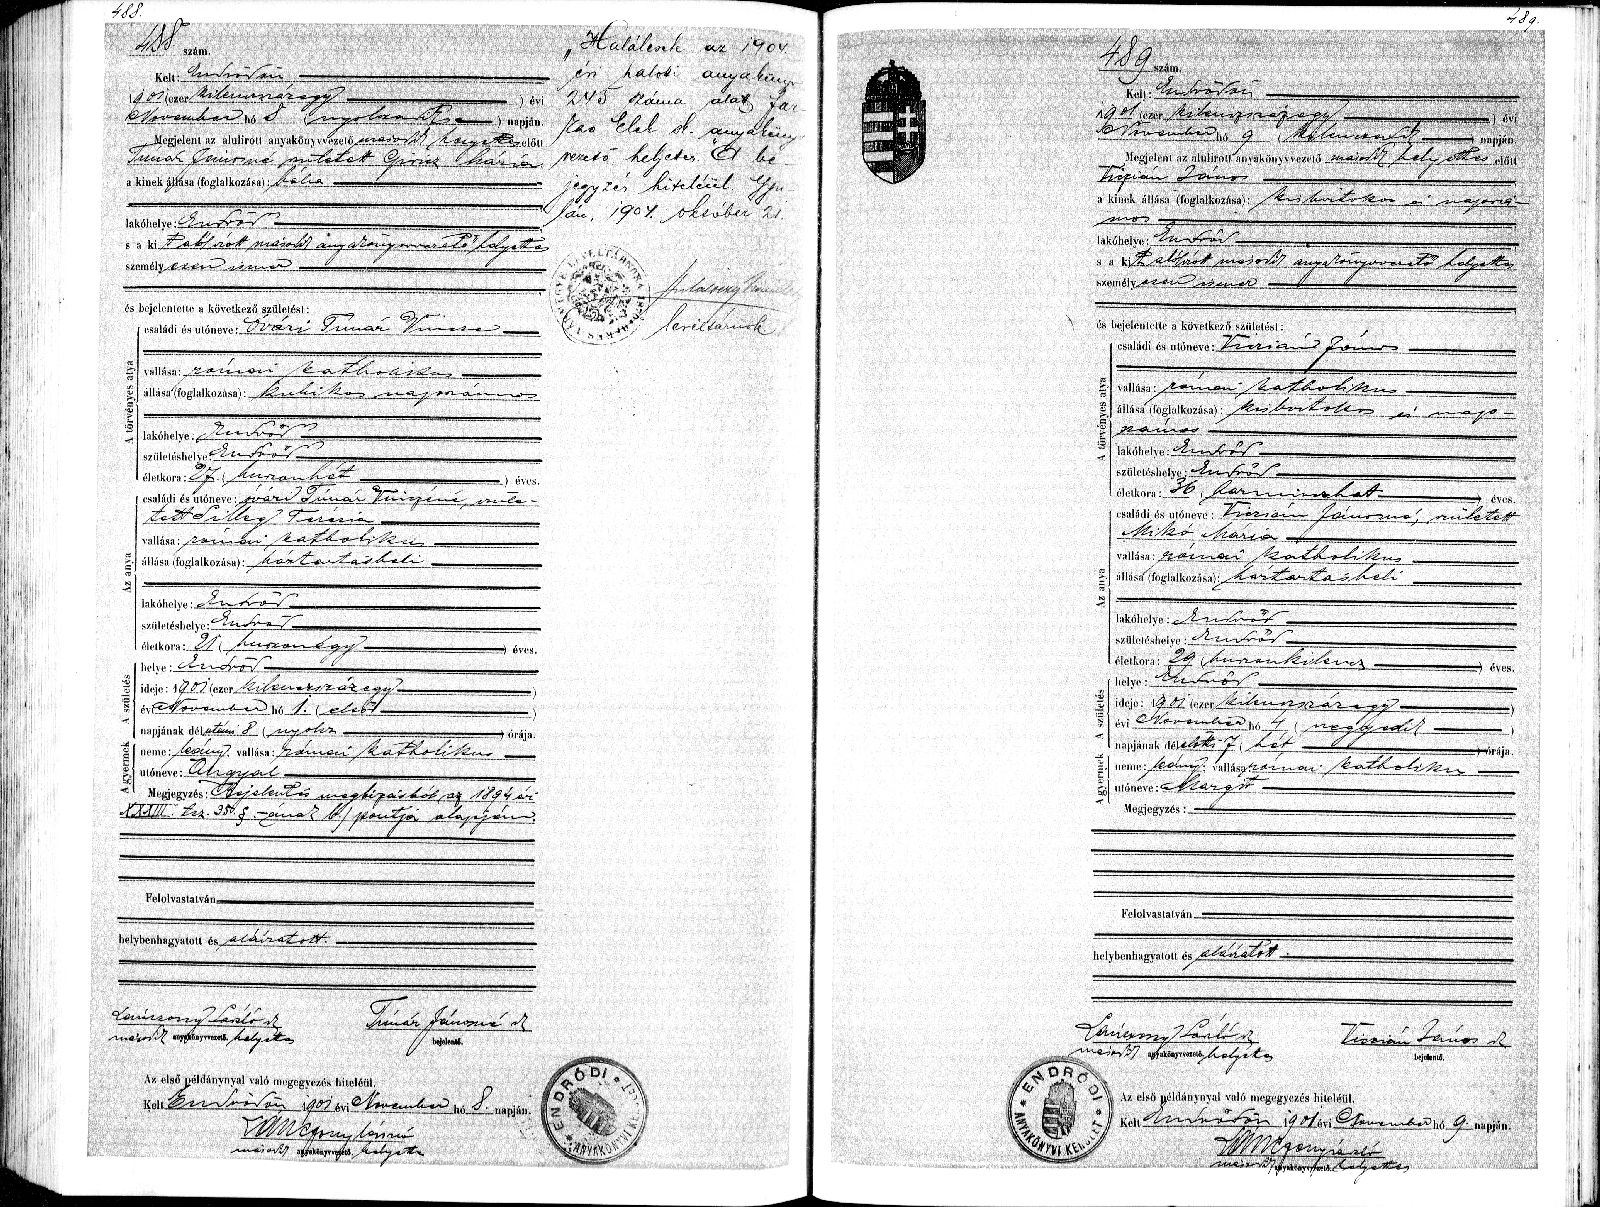 488.
488 szám.
Kelt: Endrődön
1901 (ezer kilenczszázegy) évi
November hó 8 (nyolcz) napján.
Megjelent az alulirott anyakönyvvezető másodh helyettes előtt
Tímár Jánosné született Mária
a kinek állása (foglalkozása): bába
lakóhelye: Endrőd
s a ki t alólirott másodh anyakönyvvezető helyettes
személyesen ismer
és bejelentette a következő születést:
A törvényes atya
családi és utóneve: Óvári Tímár Vincze
vallása: római katholikus
állása (foglalkozása): kubikos napszámos
lakóhelye: Endrőd
születéshelye: Endrőd
életkora: 27 (huszonhét) éves.
Az anya
családi és utóneve: óvári Tímár Vinczéné, szüle-
tett Terézia
vallása: római katholikus
állása (foglalkozása): háztartásbeli
lakóhelye: Endrőd
születéshelye: Endrőd
életkora: 21 (huszonegy) éves.
A születés
helye: Endrőd
ideje: 1901 (ezer kilenczszázegy)
évi November hó 1. (első)
napjának délután 8 (nyolcz) órája.
A gyermek
neme: leány. vallása: római katholikus
utóneve: Angyal
Megjegyzés: Bejelentés megbizásból, az 1894 évi
XXXIII. tcz. 38. § -ának b) pontja alapján
Felolvastatván
helybenhagyatott és aláiratott.
Lánczony László sk
másodh anyakönyvvezető. helyettes
Tímár Jánosné sk
bejelentő.
Az első példánynyal való megegyezés hiteléül.
Kelt Endrődön 1901 évi November hó 8. napján.
Lánczony László
másodh anyakönyvvezető. helyettes
ENDRŐDI ANYAKÖNYVI KERÜLET
„Halálesek az 1904.
évi haloti anyakönyv
245 száma alatt Far-
kas Elek sk. anyaköny
vezető helyettes. Ez be-
jegyzés hiteléül. Gyu
lán, 1904. október 21.
levéltárnok
489.
489 szám.
Kelt: Endrődön
1901 (ezer kilenczszázegy) évi
November hó 9 (kilenczedik) napján.
Megjelent az alulirott anyakönyvvezető másodh helyettes előtt
Vizsián János
a kinek állása (foglalkozása): kisbirtokos és napszá-
mos
lakóhelye: Endrőd
s a ki t alólirott másodh anyakönyvvezető helyettes
személyesen ismer
és bejelentette a következő születést:
A törvényes atya
családi és utóneve: Vizsián János
vallása: római katholikus
állása (foglalkozása): kisbirtokos és nap-
számos
lakóhelye: Endrőd
születéshelye: Endrőd
életkora: 36 (harminczhat) éves.
Az anya
családi és utóneve: Vizsián Jánosné, született
Mikó Mária
vallása: római katholikus
állása (foglalkozása): háztartásbeli
lakóhelye: Endrőd
születéshelye: Endrőd
életkora: 29 (huszonkilencz) éves.
A születés
helye: Endrőd
ideje: 1901 (ezer kilenczszázegy)
évi November hó 4 (negyedik)
napjának délelőtt 7 (hét) órája.
A gyermek
neme: leány. vallása: római katholikus
utóneve: Margit
Megjegyzés:
Felolvastatván
helybenhagyatott és aláiratott.
Lánczony László sk
másodh anyakönyvvezető. helyettes
Vizsián János sk
bejelentő.
Az első példánynyal való megegyezés hiteléül.
Kelt Endrődön 1901 évi November hó 9. napján.
Lánczony László
másodh anyakönyvvezető. helyettes
ENDRŐDI ANYAKÖNYVI KERÜLET